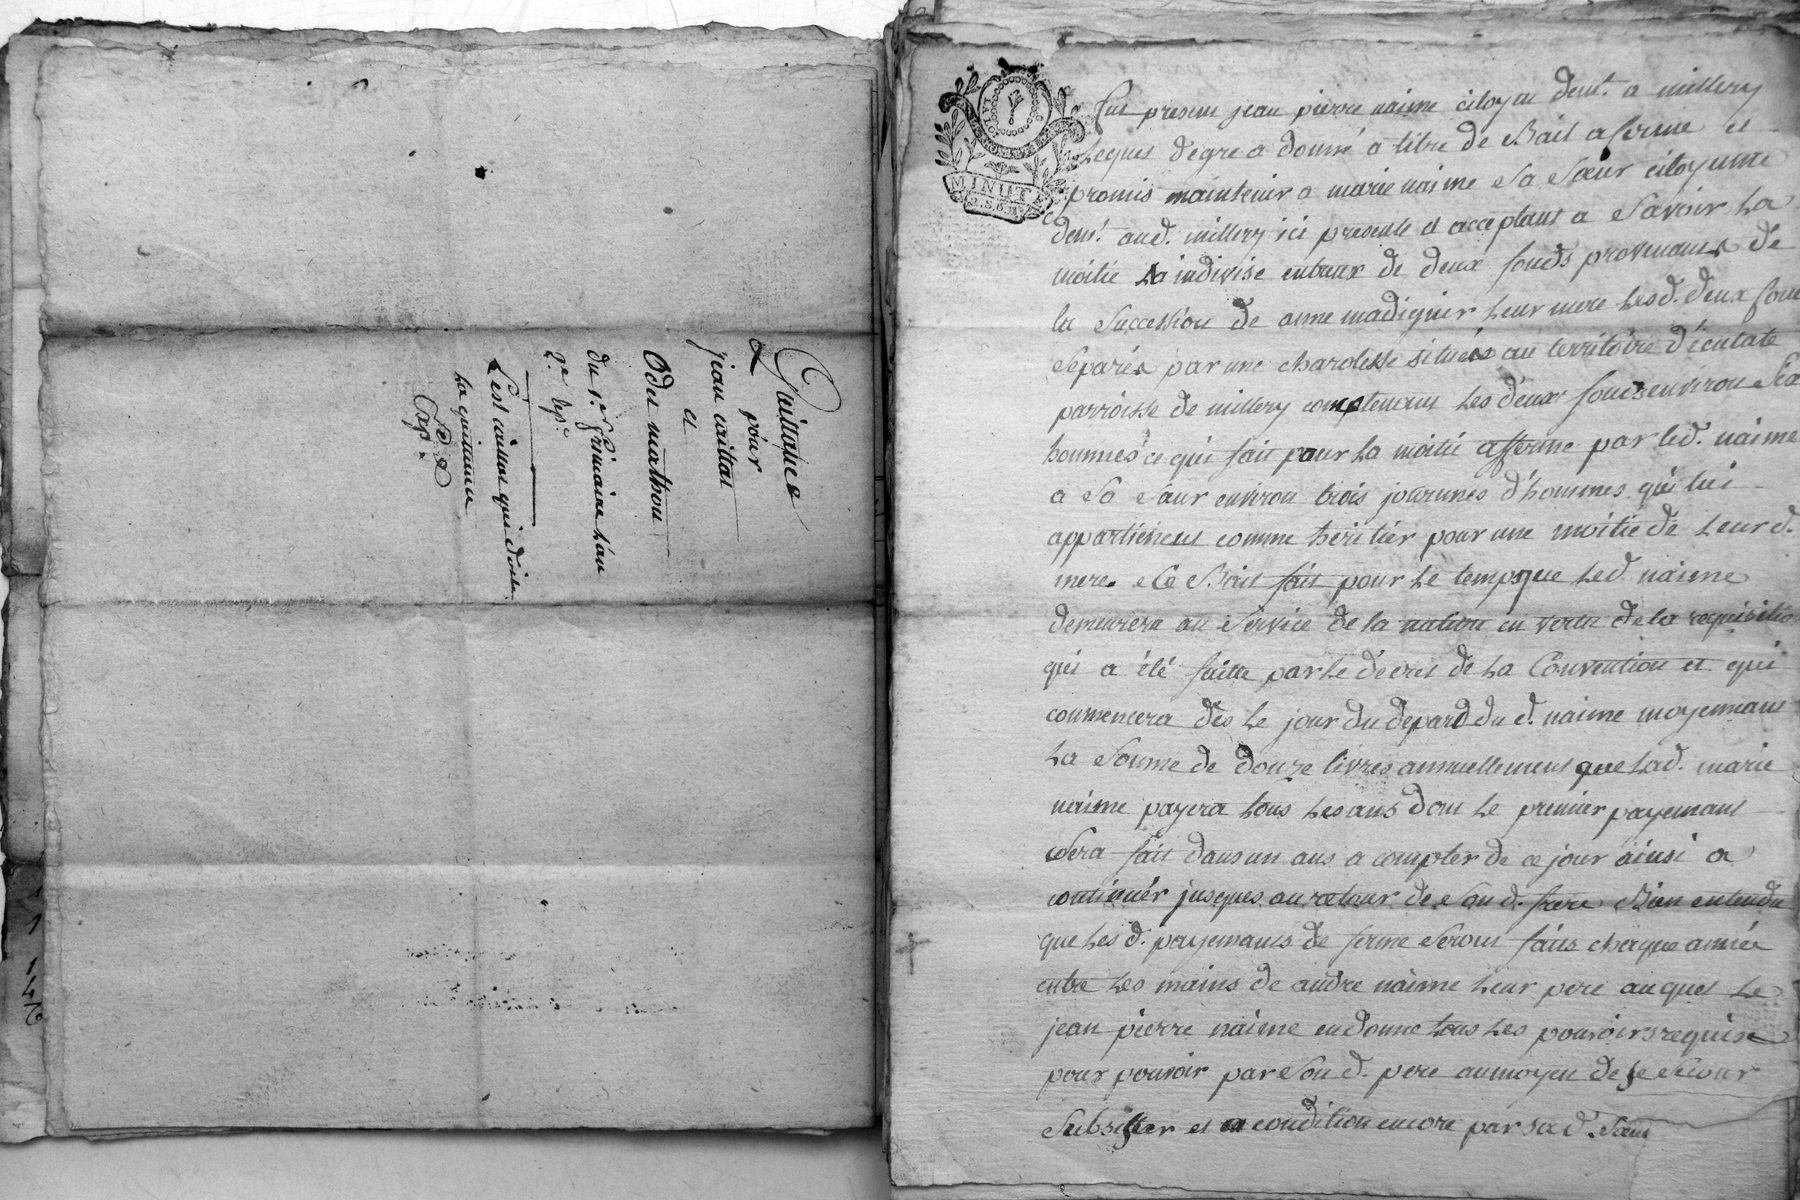 Quittance
pour
jean
et
Odet mathon
du 1er frimaire L'an
2e
L'est caillat qui doit
La quittance
Exp.
MINUTE
2.S.6.D
fut present jean pierre naime citoyen demt. a millery
Lequel degré a donné a titre de Bail a ferme et
promis maintenir a marie naime Sa Sœur citoyenne
demt. aud. millery ici presente et acceptant a Savoir La
moitié indivise entreux de deux fonds provenants de
la Succession de anne madiguier Leur mere Lesd. deux fond
Separés par une charolesse situés au territoire d'
parroisse de millery comptenant Les deux fonds environ Six
hommés ce qui fait pour La moitié affermé par led. naime
a Sa Sœur environ trois journnes d'hommes qui lui
appartienent comme heritier pour une moitié de Leur d.
mere. Ce Bail fait pour Le temps que Led. naime
demeurera au Service de la nation en vertu de la requisition
qui a été faitte par Le decret de La Convention et qui
commencera dès Le jour du depard du d. naime moyennant
La Somme de douze livres annuellement que Lad. marie
naime payera tous Les ans dont Le premier payemant
Sera fait dans un ans a compter de ce jour ainsi a
continuér jusques au retour de Son d. frere Bien entendu
que Les d. payemants de ferme Seront faits chaque année
entre Les mains de andre naime Leur pere auquel Le
jean pierre naime en donne tous Les pouvoirs requise
pour pouvoir par Son d. pere au moyen de ce Secour
Subsister et condition encore par sa d. Sœur